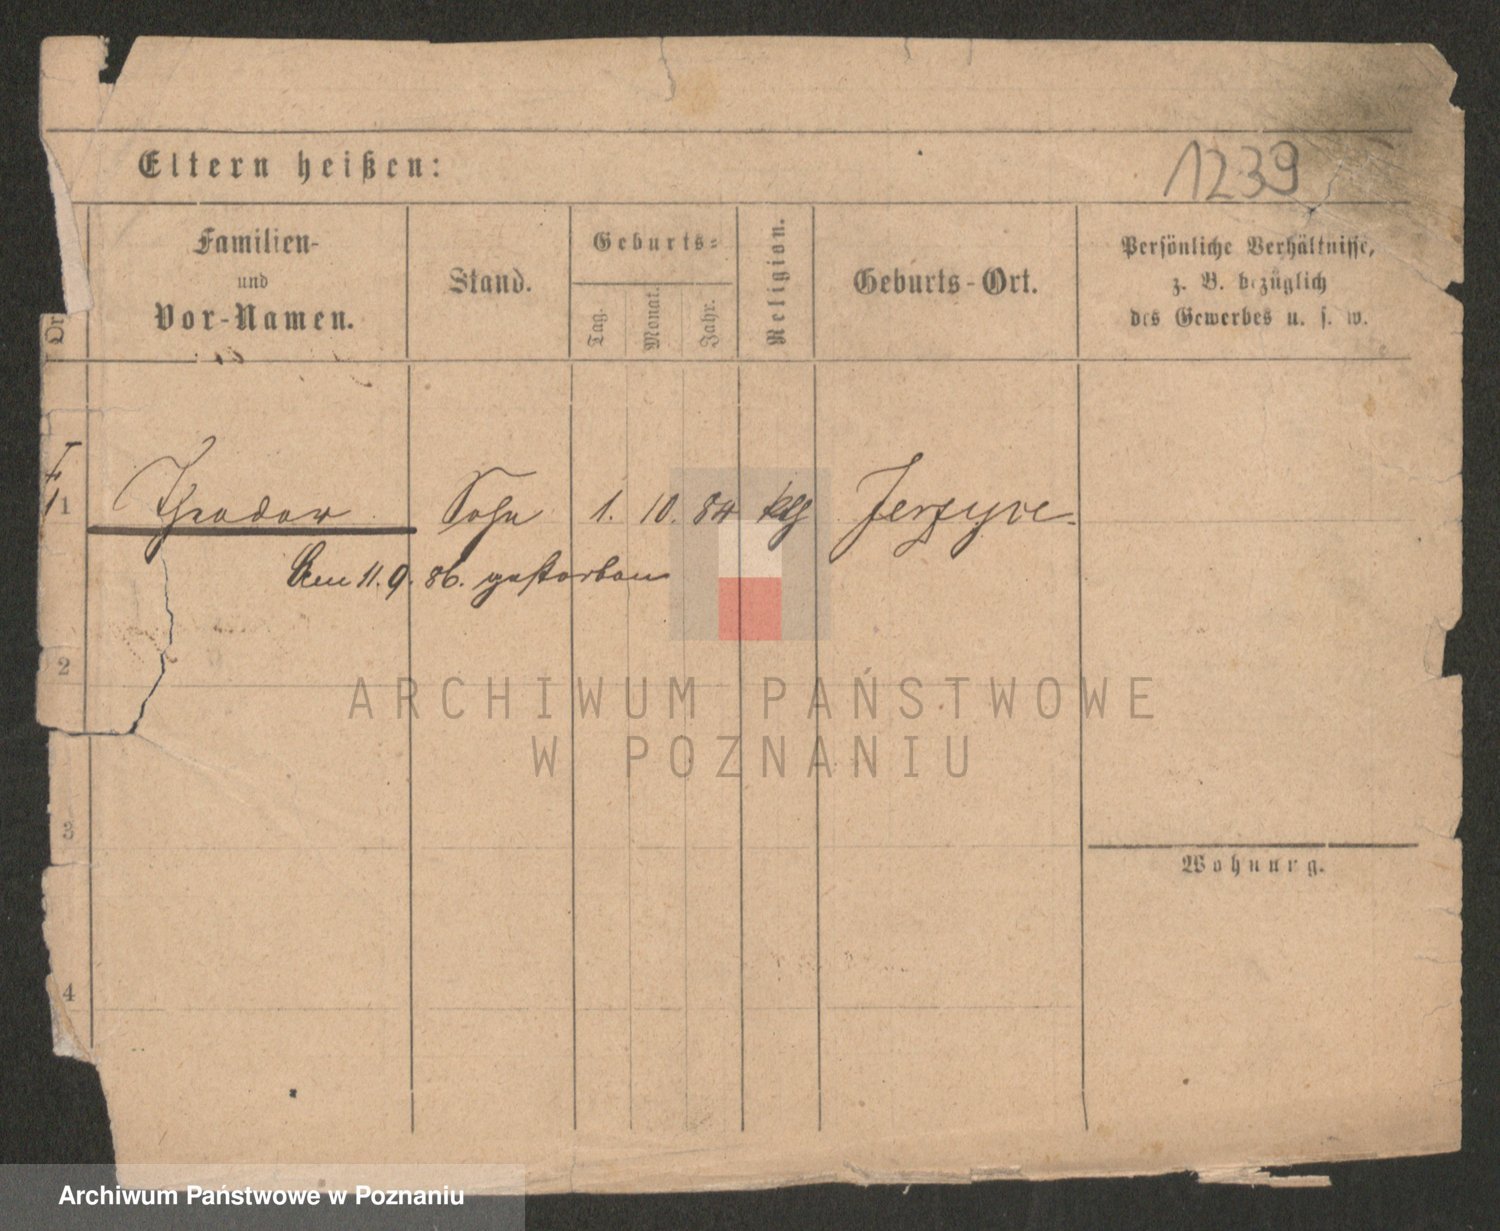 Eltern heißen:
1239
Or
Familien-
und
Vor-Namen.
Stand.
Geburts-
Tag.
Monat.
Jahr.
Religion.
Geburts-Ort.
Persönliche Verhältnisse,
z. B. bezüglich
des Gewerbes u. s. w.
1 Theodor Sohn 1. 10. 84 klh Jerzyce.
Am 11. 9. 86. gestorben
2
ARCHIWUM PAŃSTWOWE
W POZNANIU
3
Wohnung.
4
Archiwum Państwowe w Poznaniu